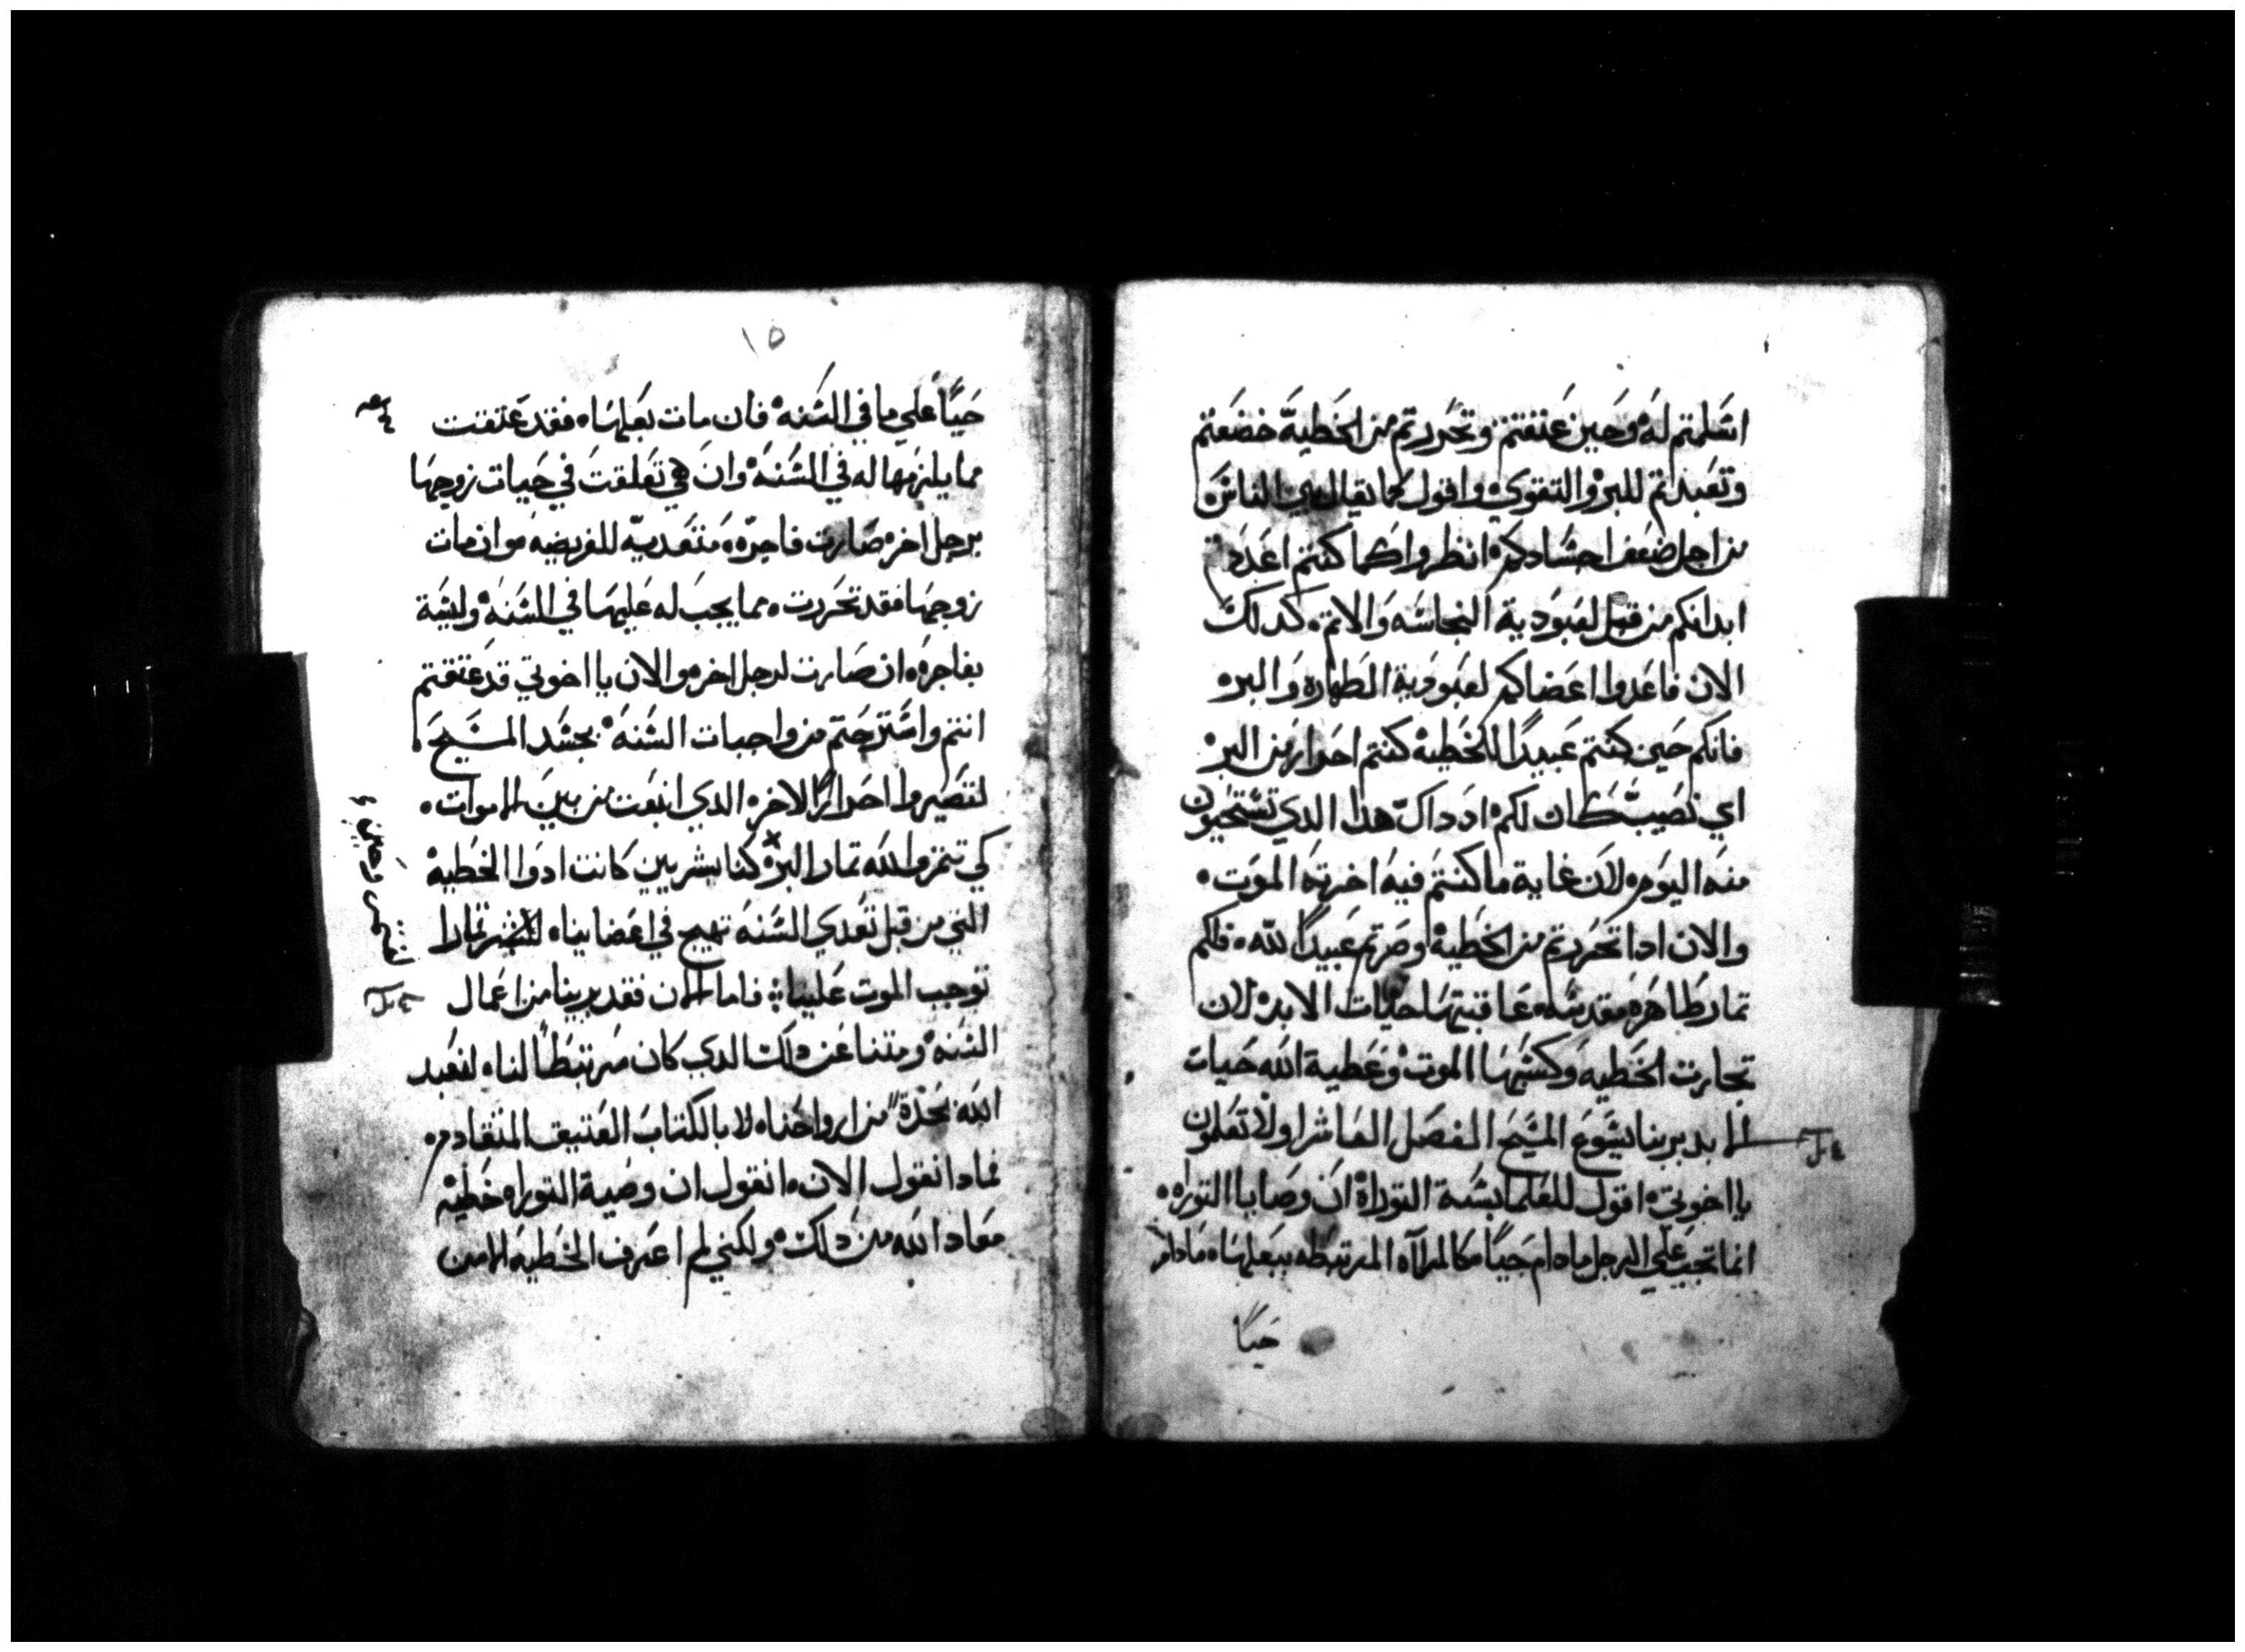 اسلمتم له وحين عتقتم وتحررتم من الخطية خضعتم
وتعبدتم للبر والتقوي وافول كما يقال بين الناس
من اجل ضعف اجسادكم انظروا كما كنتم اعددتم
ابدانكم من قبل لعبودية النجاسه والاثم كدلك
الان فاعدوا اعضاكم لعبودية الطهارة والبر
فانكم حين كنتم عبيدًا للخطية كنتم احرار من البر
اي نصيب كان لكم اد داك هدا الدي تستحيون
منه اليوم لان غاية ما كنتم فيه اخرته الموت
والان ادا تحررتم من الخطية وصرتم عبيدًا لله فلكم
تمار طاهره مقدسه عاقبتها حيات الابد لان
تجارت الخطيه وكسبها الموت وعطية الله حيات
الابد بربنا يسوع المسيح الفصل العاشر اولا تعلمون
يا اخوتي اقول للعلما بسنة التوراة ان وصايا التوراه
انما تجب علي الرجل مادام حيًا كالمرآه المرتبطه ببعلها مادام
حيًا
١٥
حيًا علي ما في السنه فان مات بعلها فقد عتقت
مما يلزمها له في السنه وان هي تعلقت في حيات زوجها
برجل اخر صارت فاجره متعدية للفريضه وان مات
زوجها فقد تحررت مما يجب له عليها في السنه وليسة
بفاجره ان صارت لرجل اخر والان يا اخوتي قد عتقتم
انتم واسترحتم من واجبات السنه بجسد المسيح
لتصيروا احرارًا لاخر الدي انبعت من بين الاموات
كي تتمروا لله تمار البر كنا بشريين كانت ادوا الخطيه
التي من قبل تعدي السنه تهيج في اعضاينا لنتمر تمارا
توجب الموت علينا فاما الان فقد برينا من اعمال
السنه ومتنا عن دلك الدي كان مرتبطًا لنا لنعبد
الله بجدة من ارواحنا لا بالكتاب العتيق المتقادم
فمادا نقول الان انقول ان وصية التوراه خطيه
معاد الله من دلك ولكني لم اعرف الخطيه الا من